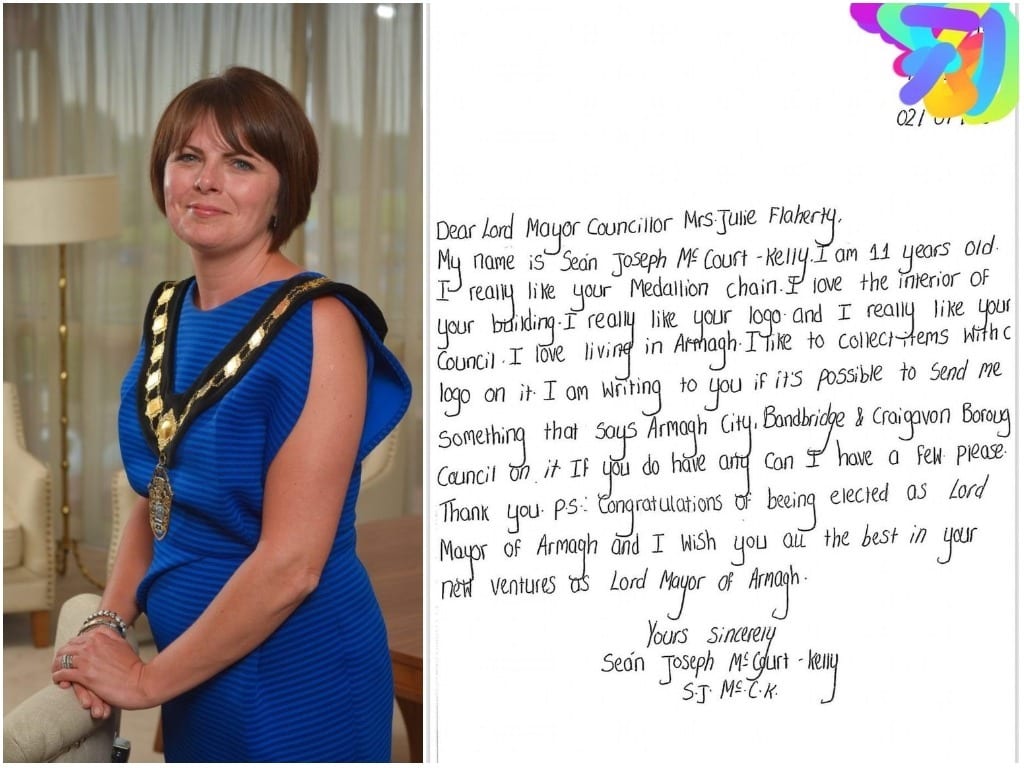 02/
Dear Lord Mayor Councillor Mrs. Julie Flaherty,
My name is Seán Joseph Mc Court - Kelly. I am 11 years old.
I really like your Medallion chain. I love the interior of
your building. I really like your logo. and I really like your
Council. I love living in Armagh. I like to collect items with
logo on it. I am writing to you if it's possible to send me
something that says Armagh City, Bandbridge & Craigavon Boroug
Council on it If you do have any can I have a few please.
Thank you. P.S: Congratulations of beeing elected as Lord
Mayor of Armagh and I wish you all the best in your
new ventures as Lord Mayor of Armagh.
Yours sincerely
Seán Joseph Mc Court - Kelly
S.J. Mc.C.K.